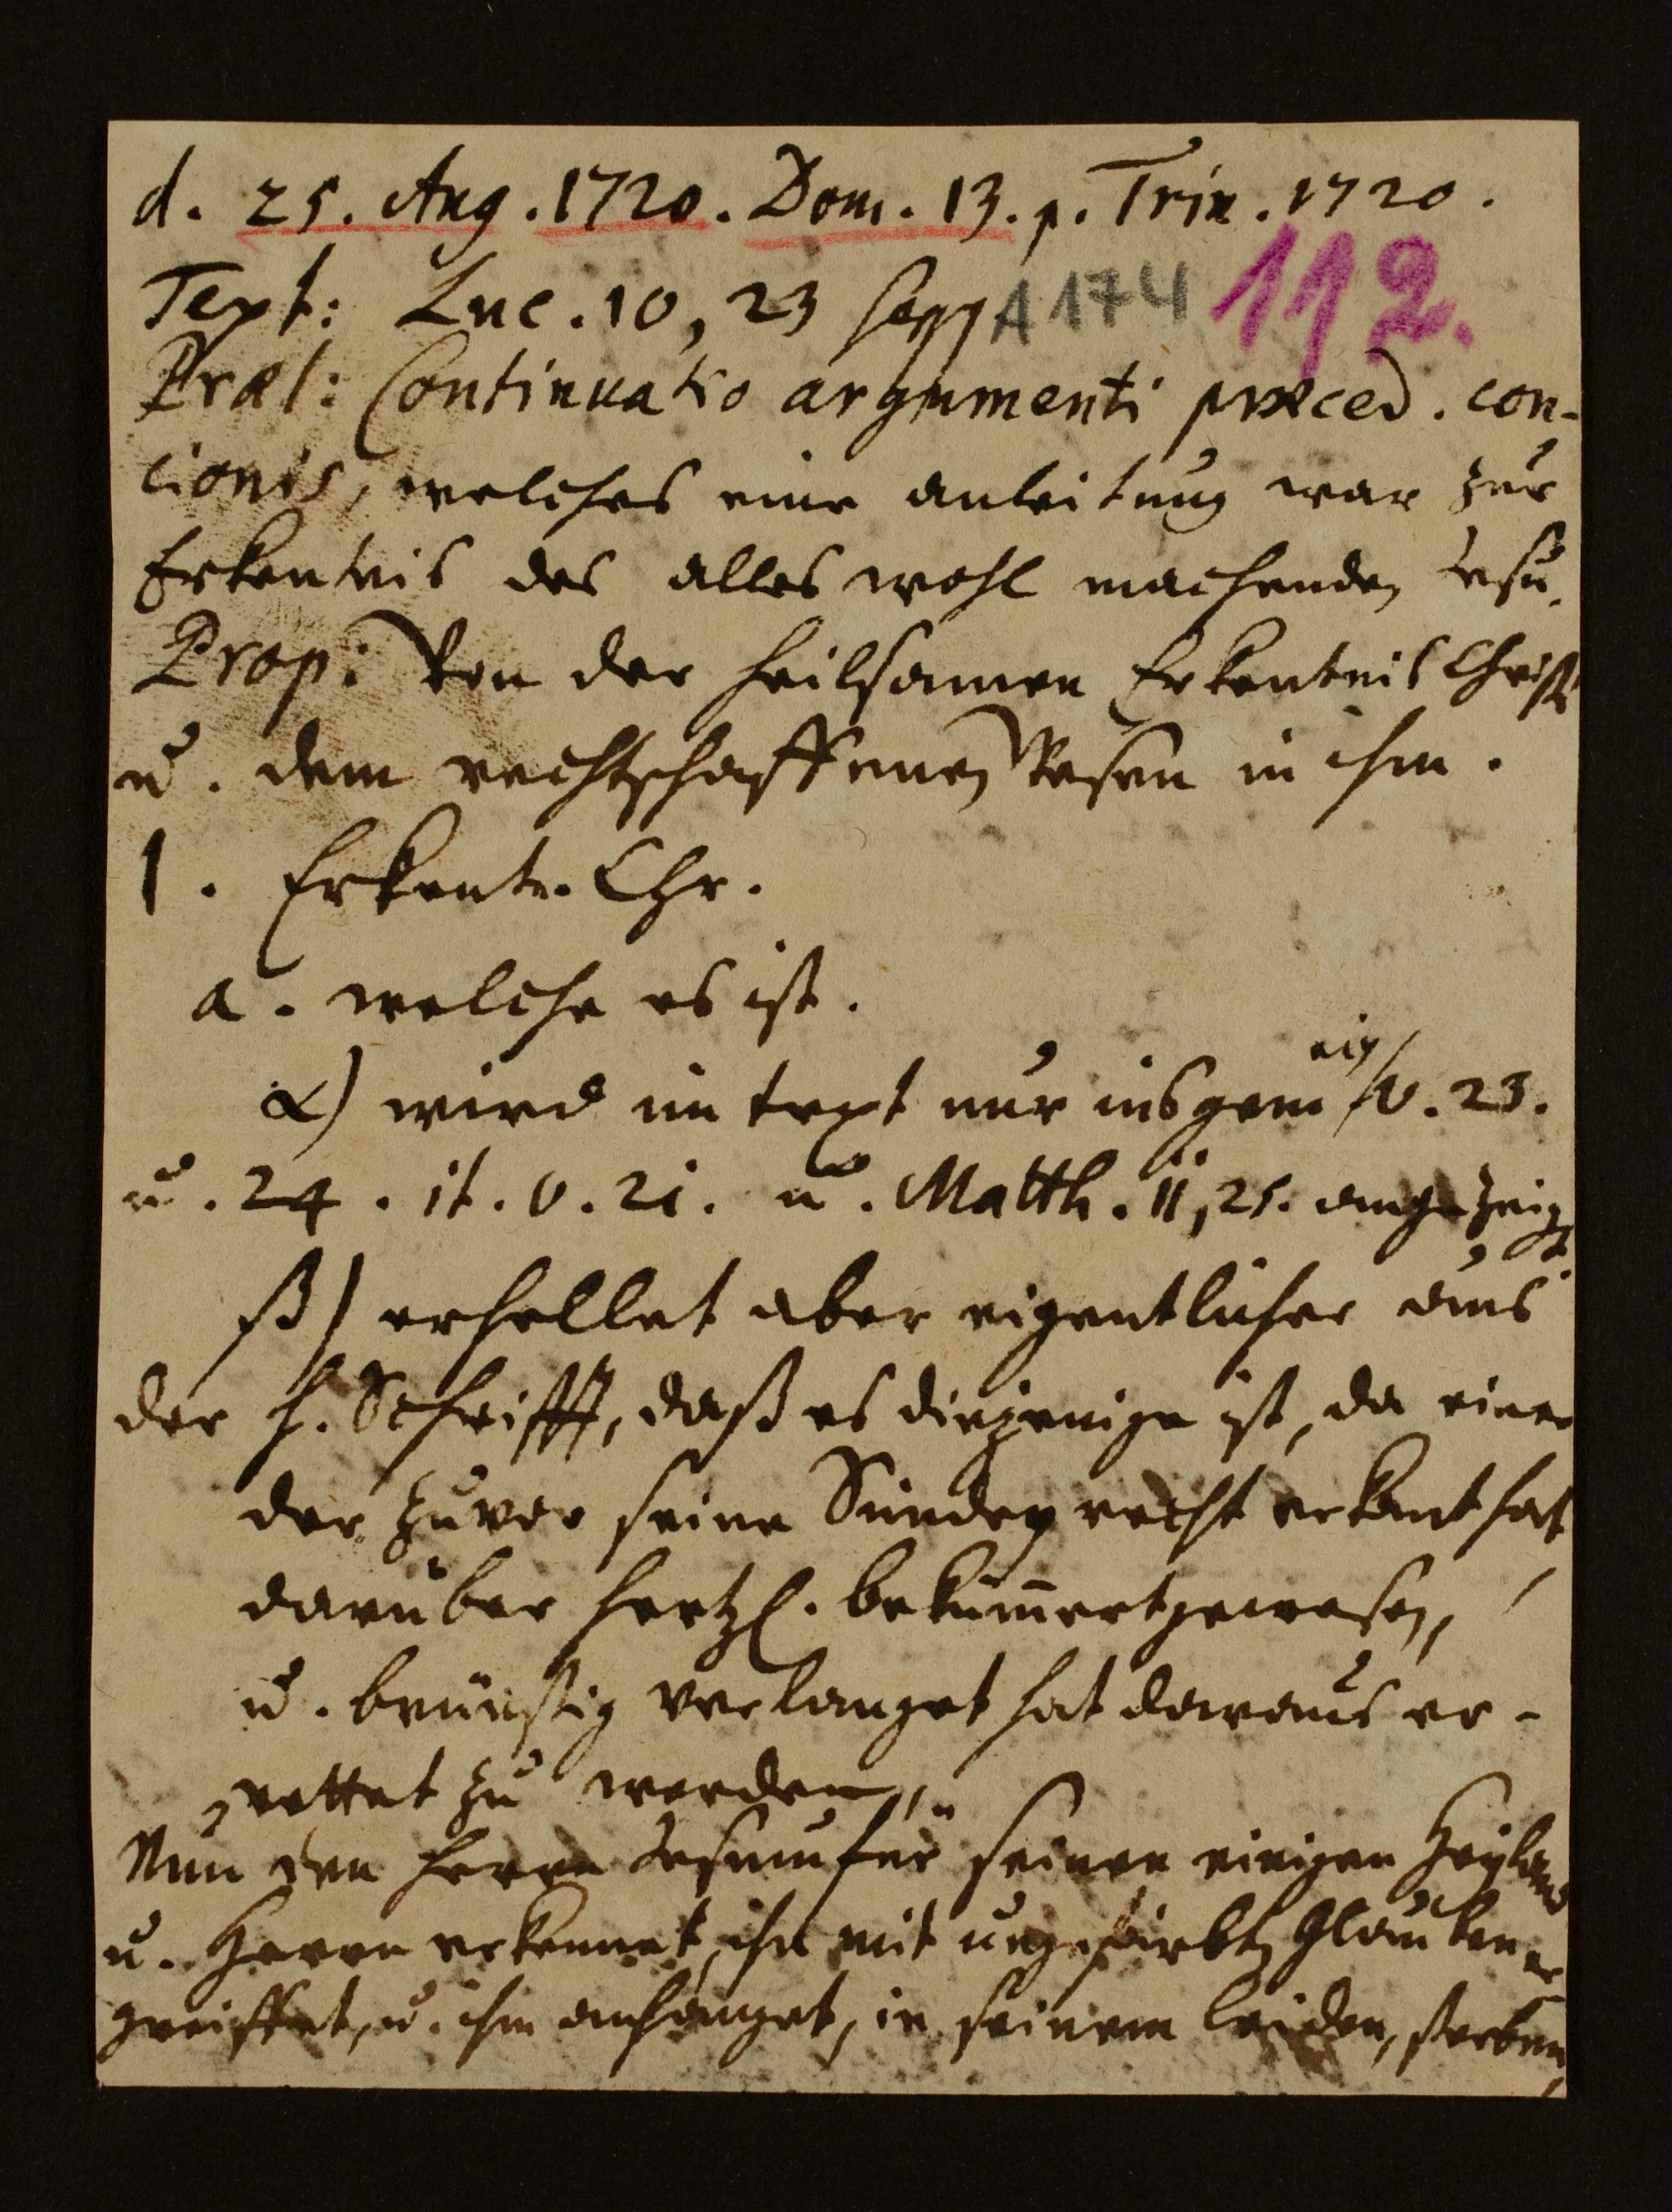 d. 25. Aug. 1720. Dom. 13. p. Trin. 1720.
Text: Luc. 10, 23 seqq A 174 112.
Præl: Continuatio argumenti præced. con-
cionis, welches eine anleitung war zur
Erkentnis des alles wohl machenden Jesu.
Prop: Von der heilsamen Erkentnis Christi
u. dem rechtschaffenen Wesen in ihm.
1. Erkentn. Chr.
a. welche es ist.
α) wird im text nur insgemein v. 23.
u. 24. it. v. 21. u. Matth. 11, 25. angezeigt
β) erhellet aber eigentlicher aus
der h. Schrifft, daß es diejenige ist, da einer
der zuvor seine Sünden recht erkant hat,
darüber hertzl. bekümmert gewesen,
u. brünstig verlanget hat daraus er-
rettet zu werden,
Nun den Herrn Jesum für seinen einigen Heyland
u. Herrn erkennet, ihn mit ungefärbten Glauben er
greiffet, u. ihm anhanget, in seinem leiden, sterben,